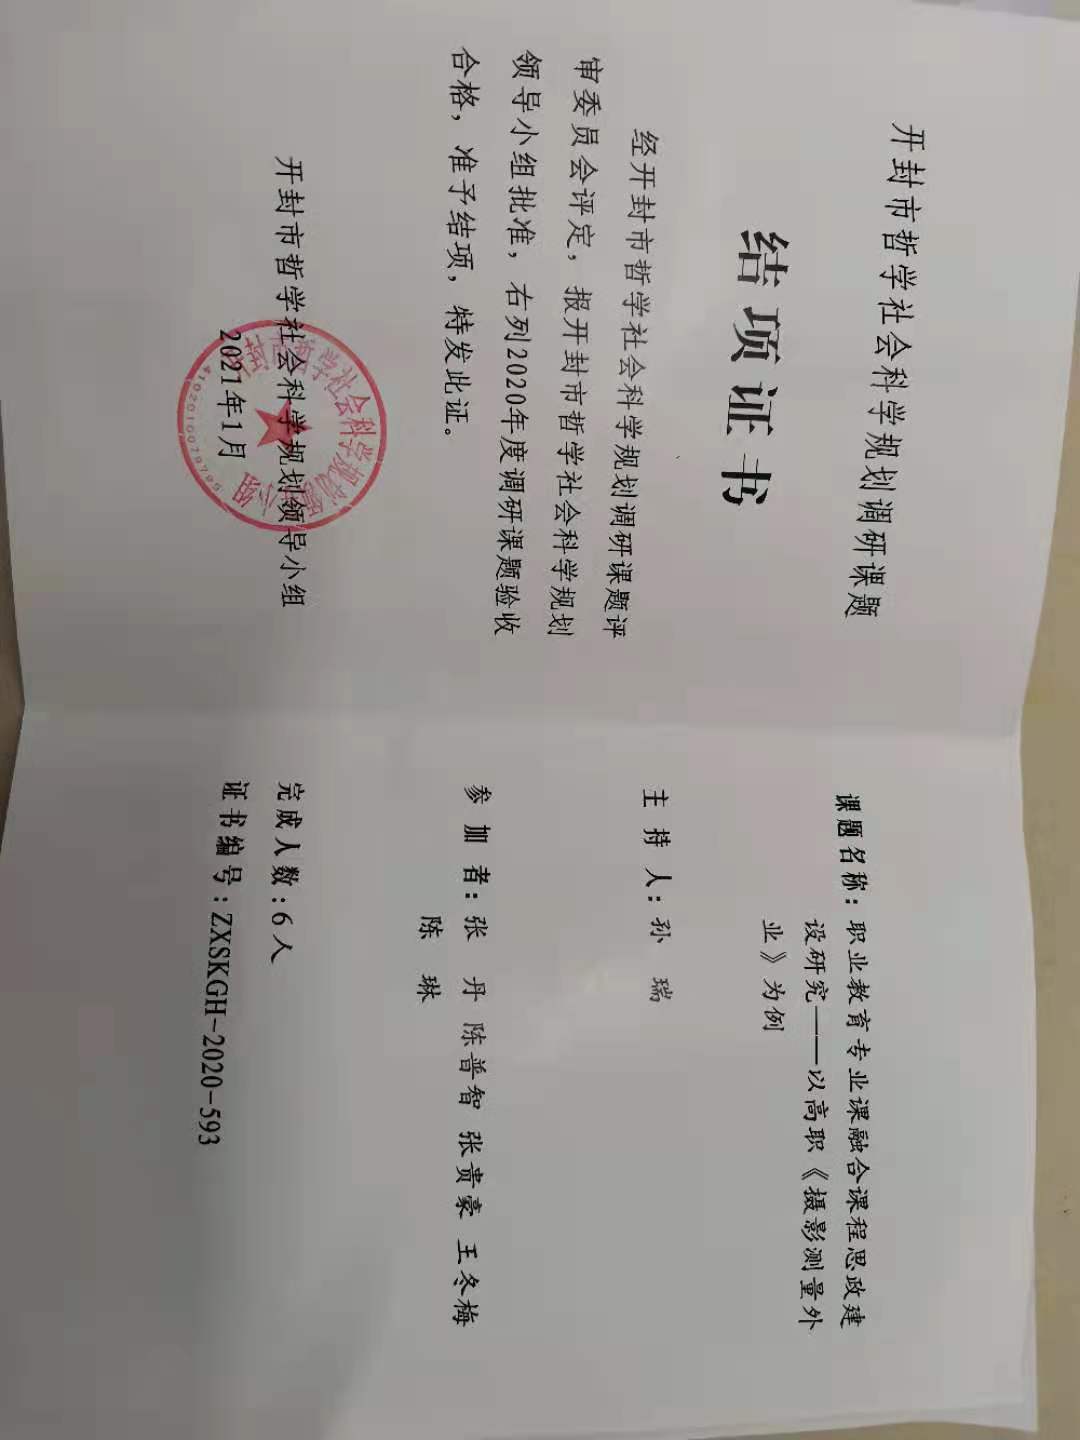 开封市哲学社会科学规划调研课题
结项证书
经开封市哲学社会科学规划调研课题评
审委员会评定，报开封市哲学社会科学规划
领导小组批准，右列2020年度调研课题验收
合格，准予结项，特发此证。
开封市哲学社会科学规划领导小组
2021年1月
课题名称：职业教育专业课融合课程思政建
设研究——以高职《摄影测量外
业》为例
主 持 人：孙 瑞
参 加 者：张 丹 陈普智 张贵豪 王冬梅
陈 琳
完成人数：6人
证书编号：ZXSKGH-2020-593